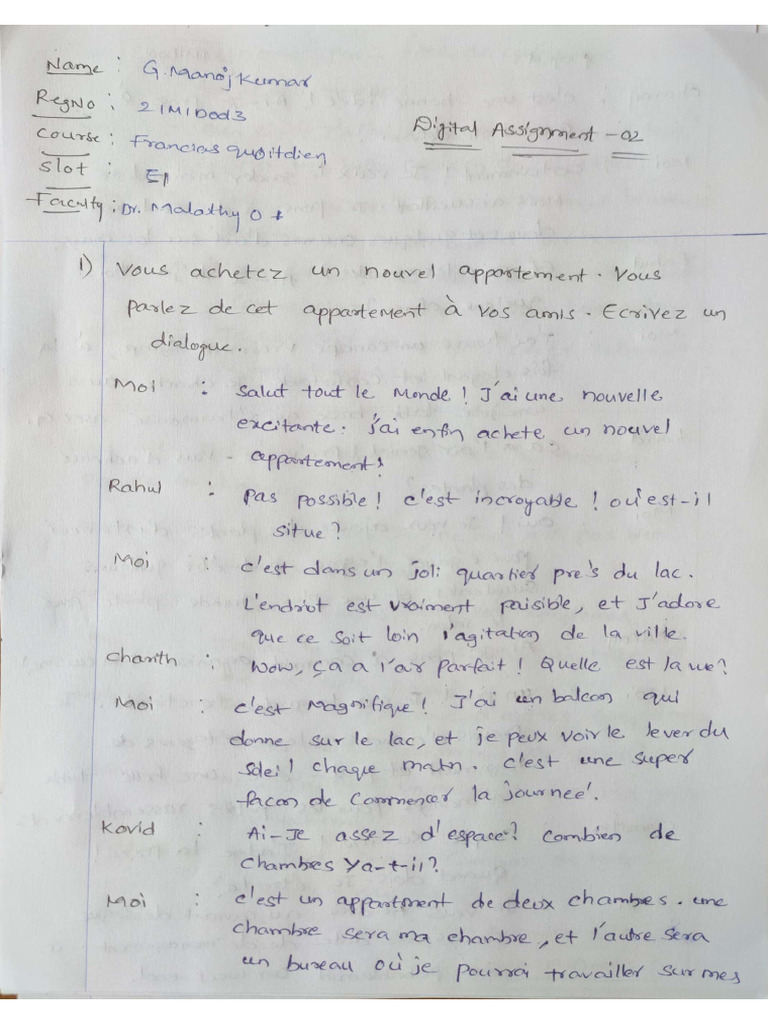 Name : G. Manoj Kumar
RegNo : 21MID0d3
Course : Francias quoitdien
Slot : E1
Faculty : Dr. Malathy O +
Digital Assignment -02
1) Vous achetez un nouvel appartement. Vous
parlez de cet appartement à vos amis. Ecrivez un
dialogue.
Moi : Salut tout le Monde ! J'ai une nouvelle
excitante : j'ai enfin achete un nouvel
appartement!
Rahul : Pas possible ! c'est incroyable ! où est-il
situe?
Moi : c'est dans un joli quartier pre's du lac.
L'endriot est vraiment paisible, et J'adore
que ce soit loin l'agitation de la ville.
Charith : Wow, ça a l'air parfait ! Quelle est la vue?
Moi : c'est Magnifique! J'ai un balcon qui
donne sur le lac, et je peux voir le lever du
soleil chaque matn. c'est une super
façon de commencer la journeé.
Kovid : Ai-Je assez d'espace? Combien de
chambres Ya-t-il?
Moi : c'est un appartment de deux chambres. une
chambre sera ma chambre, et l'autre sera
un bureau où je pourrai travailler sur mes